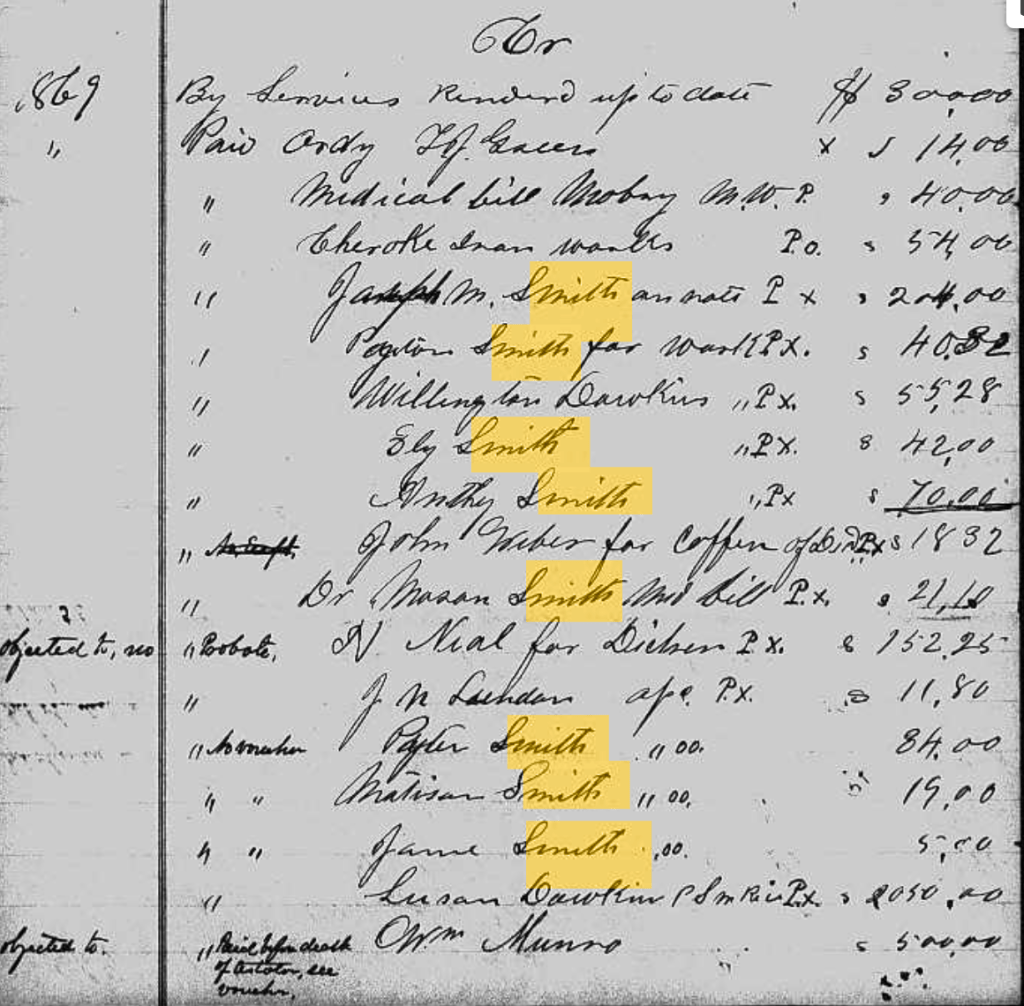 Cr
1869 By Services Renderd up to date $ 300,00
" Paid Ordy x s 14,00
" Medical bill Mobny M.W. P. s 40.00
" Cheroke P.o. s 54,00
" Joseph M. Smith on note P x s 204,00
" Smith for work P.X. s 40.32
" Willington Dawkins " Px. s 55,28
" Ely Smith " Px. s 42,00
" Anthy Smith " Px s 70,00
" John Weber for Coffin of Px s 1832
" Dr Mason Smith Md bill P.x. s 21,10
objected to, no " Probate, N Nial for P x. s 152.25
" J N apc. P.x. s 11,80
" No voucher Smith " 00. 84,00
" " Matison Smith " 00. 19,00
" " Jane Smith " 00. 5,00
" Susan Dawkin P.x. s 2050,00
objected to. " Paid before death Wm Munro s 500,00
of testator, see
voucher,